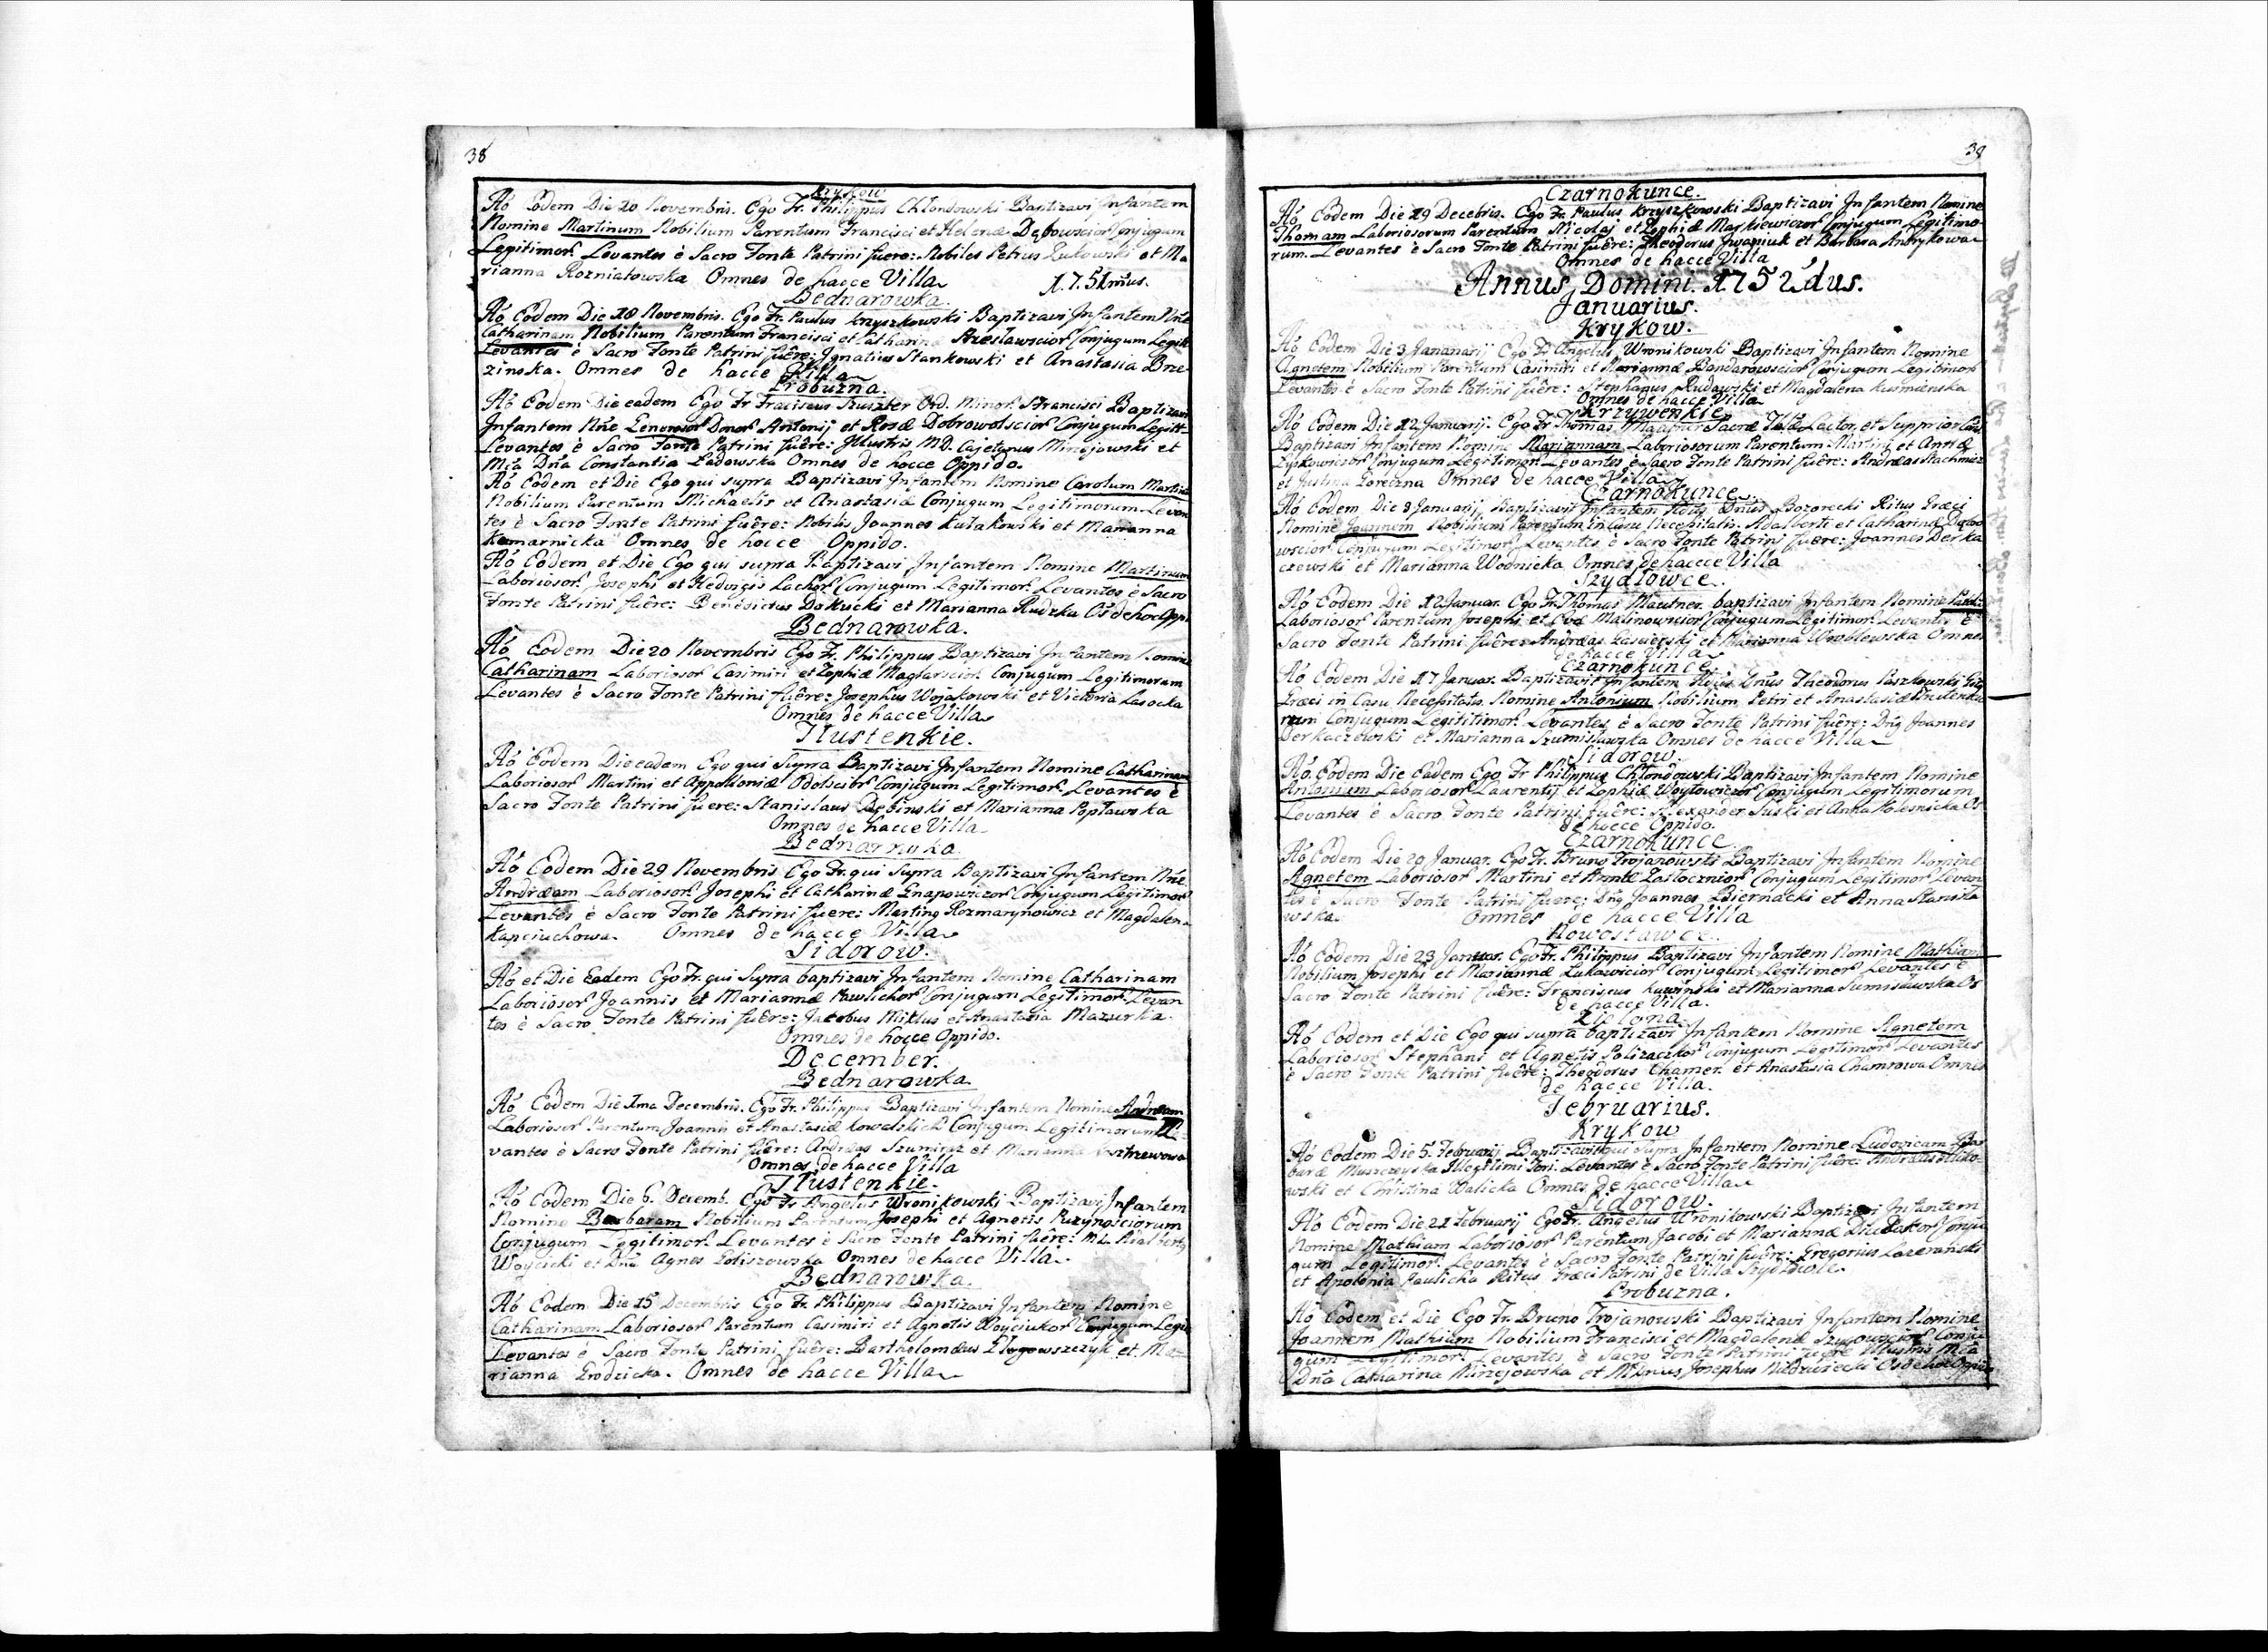 38
Krykow
Aó Eodem Die 20 Novembris. Ego Fr. Philippus Chlondowski Baptizavi Infantem
Nomine Martinum Nobilium Parentum Francisci et Helenæ Dębowscior Conjugum
Legitimor. Levantes è Sacro Fonte Patrini fuere: Nobiles Petrus Zukowski et Ma
rianna Rozniatowska Omnes de hacce Villa 1.7.51mus.
Bednarowka.
Aó Eodem Die 28 Novembris. Ego Fr. Paulus Kryszkowski Baptizavi Infantem Nñe
Catharinam Nobilium Parentum Francisci et Catharinæ Conjugum Legit
Levantes è Sacro Fonte Patrini fuêre: Ignatius Stankowski et Anastasia Brze
zinska. Omnes de hacce Villa
Probuzna.
Aó Eodem Die eadem Ego Fr Fraciscus Szuszter Ord. Minor. S Francisci Baptizavi
Infantem Nñe Antonij et Rosæ Dobrowolscior Conjugum Legitt
Levantes è Sacro Fonte Patrini fuêre: Illustris MD. Cajetanus Minojowski et
Mĩa Dña Constantia Ładowska Omnes de hocce Oppido.
Aó Eodem et Die Ego qui supra Baptizavi Infantem Nomine Carolum Martin
Nobilium Parentum Michaelis et Anastasiæ Conjugum Legitimorum Levan
tes è Sacro Fonte Patrini fuêre: Nobilis Joannes Kułakowski et Marianna
Komarnicka Omnes de hocce Oppido.
Aó Eodem et Die Ego qui supra Baptizavi Infantem Nomine Martinum
Laboriosor. Josephi et Hedvigis Lachor. Conjugum Legitimor. Levantes è Sacro
Fonte Patrini fuêre: Benedictus Dokucki et Marianna Rudzka Os de hoc Opp.
Bednarowka.
Aó Eodem Die 20 Novembris Ego Fr. Philippus Baptizavi Infantem Nomine
Catharinam Laboriosor Casimiri et Zophiæ Conjugum Legitimorum
Levantes è Sacro Fonte Patrini fuêre: Josephus Wojakowski et Victoria Lasocka
Omnes de hacce Villa
Tlustenkie.
Aó Eodem Die eadem Ego qui Supra Baptizavi Infantem Nomine Catharinam
Laboriosor Martini et Appolloniæ Odolscior Conjugum Legitimor. Levantes è
Sacro Fonte Patrini fuere: Stanislaus Dębinski et Marianna Popławska
Omnes de hacce Villa
Bednarowka.
Aó Eodem Die 29 Novembris Ego Fr. qui Supra Baptizavi Infantem Nñe
Andræam Laboriosor. Josephi et Catharinæ Conjugum Legitimor
Levantes è Sacro Fonte Patrini fuere: Martinq Rozmarynowicz et Magdalena
Kapciuchowa. Omnes de hacce Villa
Sidorow.
Aó et Die Eadem Ego Fr. qui Supra baptizavi Infantem Nomine Catharinam
Laboriosor Joannis et Mariannæ Pawlichor Conjugum Legitimor. Levan
tes è Sacro Fonte Patrini fuêre: Jacobus Miklus et Anastazia Mazurka.
Omnes de hocce Oppido.
December.
Bednarowka
Aó Eodem Die 1ma Decembris. Ego Fr. Philippus Baptizavi Infantem Nomine Andream
Laboriosor Parentum Joannis et Anastasiæ Kowalskich Conjugum Legitimorum Le
vantes è Sacro Fonte Patrini fuêre: Andræas Szumicz et Marianna
Omnes de hacce Villa
Tlustenkie.
Aó Eodem Die 6. Decemb. Ego Fr Angelus Wronikowski Baptizavi Infantem
Nomine Barbaram Nobilium Parentum Josephi et Agnetis Ruzynosciorum
Conjugum Legitimor. Levantes è Sacro Fonte Patrini fuêre: Adalbertq
Woycicki et Dña Agnes Goliszowska Omnes de hacce Villa.
Bednarowka.
Aó Eodem Die 15 Decembris Ego Fr. Philippus Baptizavi Infantem Nomine
Catharinam Laboriosor Parentum Casimiri et Agnetis Woyciukor Conjugum Legit
Levantes è Sacro Fonte Patrini fuêre: Bartholomæus Zlogowszczyk et Ma
rianna Grodzicka. Omnes de hacce Villa
39
Czarnokunce.
Aó Eodem Die 29 Decebris. Ego Fr. Paulus Kryszkowski Baptizavi Infantem Nomine
Thomam Laboriosorum Parentum Nicolai et Zophiæ Markiewiczor Conjugum Legitimo
rum. Levantes è Sacro Fonte Patrini fuêre: Theodorus Jwaniuk et Barbara Andrykowa
Omnes de hacce Villa
Annus Domini 1752dus.
Januarius.
Krykow.
Aó Eodem Die 3 Jananarij Ego Fr Angelus Wronikowski Baptizavi Infantem Nomine
Agnetem Nobilium Parentum Casimiri et Mariannæ Bondarowscior Conjugum Legitimor
Levantes è Sacro Fonte Patrini fuêre: Stephanus Rudawski et Magdalena Kusmierska
Omnes de hacce Villa
Krzywenkie
Aó Eodem Die 12 Januarij. Ego Fr Thomas Mautner Sacræ Lector et Supprior
Baptizavi Infantem Nomine Mariannam Laboriosorum Parentum Martini et Annæ
Zyskowicor Conjugum Legitimor. Levantes è Sacro Fonte Patrini fuêre: Andræas Stachnicz
et Justina Omnes de hacce Villa
Czarnokunce.
Aó Eodem Die 8 Januarij Baptizavit Infantem Dnus Bozorecki Ritus Græci
Nomine Joannem Nobilium Parentum in Casu Necessitatis. Adalberti et Catharinæ Dębo
wscior. Conjugum Legitimor. Levantes è Sacro Fonte Patrini fuêre: Joannes Derka
czewski et Marianna Wodnicka Omnes de hacce Villa
Szydlowce.
Aó Eodem Die 12 Januar. Ego Fr. Thomas Mautner. baptizavi Infantem Nomine
Laboriosor Parentum Josephi et Evæ Malinowscior Conjugum Legitimor. Levantes è
Sacro Fonte Patrini fuêre: Andræas et Marianna Wroblewska Omnes
de hacce Villa
Czarnokunce.
Aó Eodem Die 17 Januar. Baptizavit Infantem Dnus Theodorus Paszkowski
Græci in Casu Necessitatis. Nomine Antonium Nobilium Petri et Anastasiæ
rum Conjugum Legititimor. Levantes è Sacro Fonte Patrini fuêre: Dnq Joannes
Derkaczewski et Marianna Szumisławska Omnes de hacce Villa
Sidorow.
Aó. Eodem Die Eadem Ego Fr Philippus Chlondowski Baptizavi Infantem Nomine
Antonium Laboriosor Laurentij et Zophiæ Woytowiczor Conjugum Legitimorum
Levantes è Sacro Fonte Patrini fuêre: Alexander Suski et Anna Kolesnicka Os
de hocce Oppido.
Czarnokunce.
Aó Eodem Die 20 Januar. Ego Fr. Bruno Trojanowski Baptizavi Infantem Nomine
Agnetem Laboriosor Martini et Annæ Conjugum Legitimor Levan
tes è Sacro Fonte Patrini fuere: Dnq Joannes Biernacki et Anna Stanisła
wska. Omnes de hacce Villa
Nowostawce.
Aó Eodem Die 23 Januar. Ego Fr. Philippus Baptizavi Infantem Nomine Mathiam
Nobilium Josephi et Mariannæ Lukawicior Conjugum Legitimor Levantes è
Sacro Fonte Patrini fuêre: Franciscus Kuwinski et Marianna Sumislawska Os
de hacce Villa.
Zielona
Aó Eodem et Die Ego qui supra baptizavi Infantem Nomine Agnetem
Laboriosor Stephani et Agnetis Polizaczkor Conjugum Legitimor Levantes
è Sacro Fonte Patrini fuêre: Theodorus Chamer et Anastasia Chamrowa Omnes
de hacce Villa.
Februarius.
Krykow
Aó Eodem Die 5. Februarij Baptizavit qui Supra Infantem Nomine Ludovicam Bar
baræ Muszczynska Illegitimi Tori. Levantes è Sacro Fonte Patrini fuêre: Andræas
wski et Christina Walicka Omnes de hacce Villa
Sidorow.
Aó Eodem Die 21 Februarij Ego Fr. Angelus Wronikowski Baptizavi Infantem
Nomine Mathiam Laboriosor Parentum Jacobi et Mariannæ Conju
gum Legitimor. Levantes è Sacro Fonte Patrini fuêre: Gregorius Lazeranski
et Apolonia Paulicha Ritus Græci Patrini de Villa
Probuzna.
Aó Eodem et Die Ego Fr. Bruno Trojanowski Baptizavi Infantem Nomine
Joannem Mathiam Nobilium Francisci et Magdalenæ Conju
gum Legitimor. Levantes è Sacro Fonte Patrini fuêre Illustris Mĩa
Dña Catharina Minejowska et MDnus Josephus Os de hoc Oppido